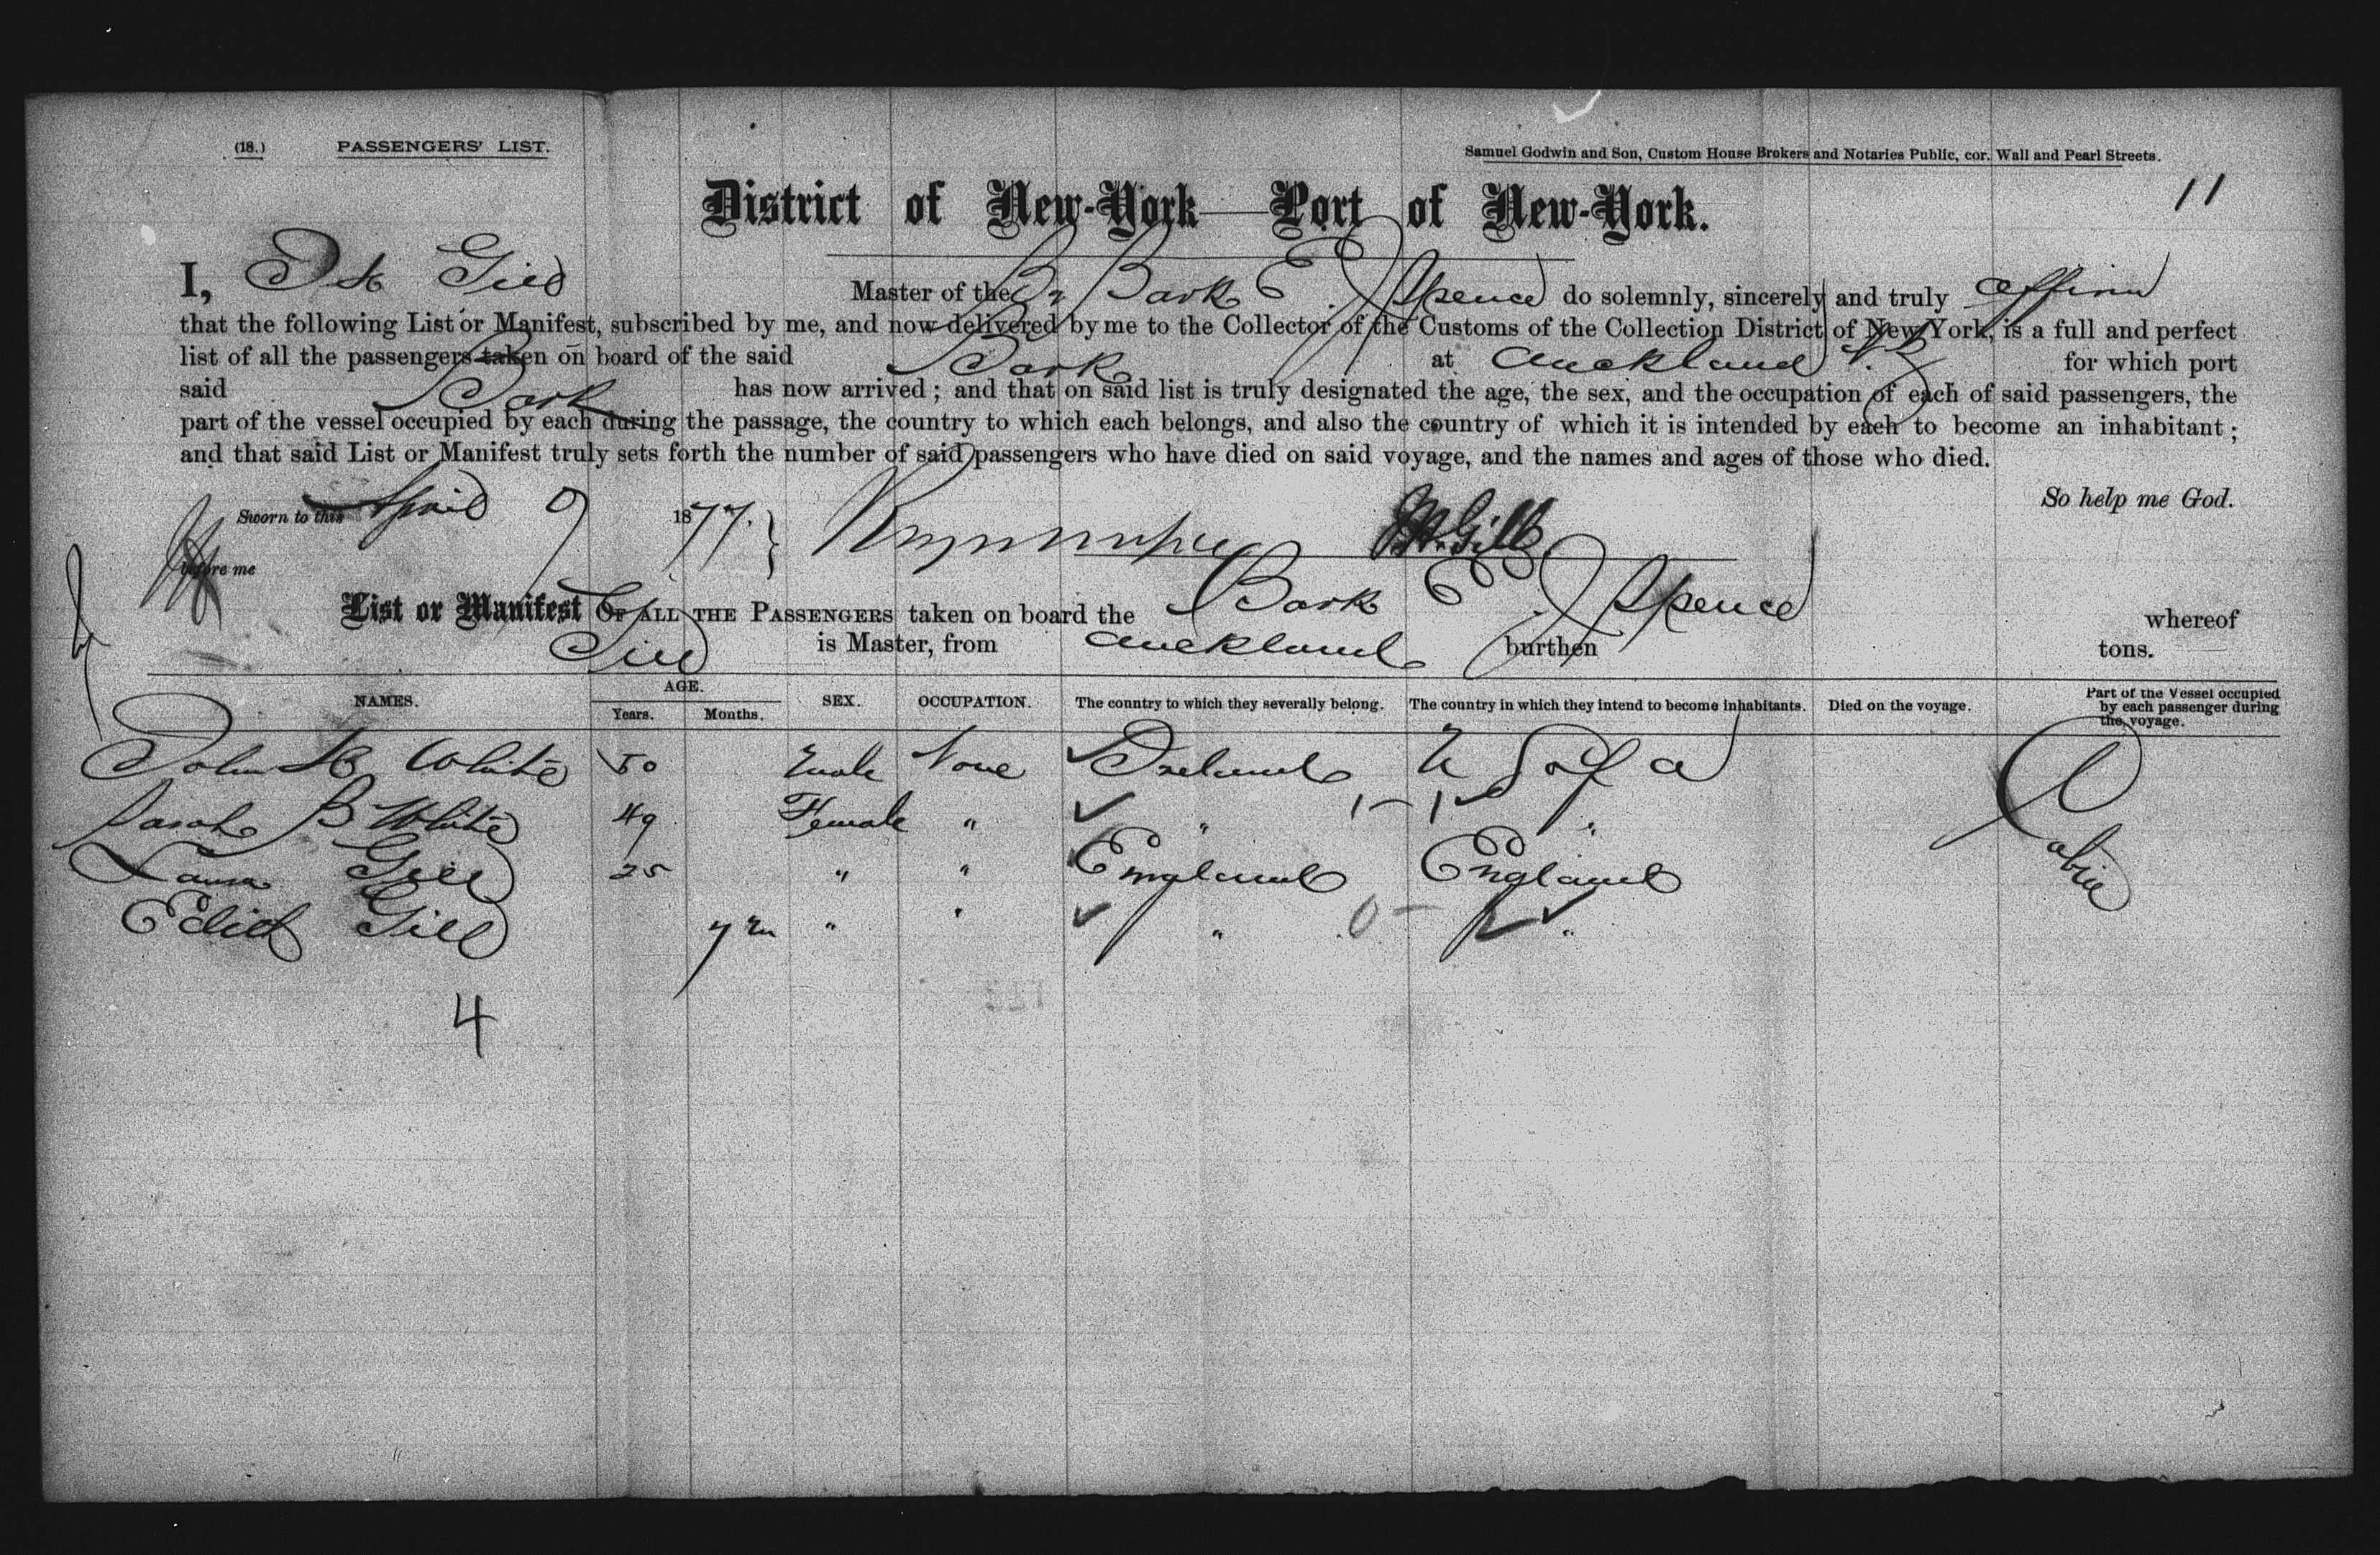 (18.) PASSENGERS' LIST.
Samuel Godwin and Son, Custom House Brokers and Notaries Public, cor. Wall and Pearl Streets.
11
District of New-York—Port of New-York.
I, Gill Master of the Br Bark E. J Spence do solemnly, sincerely and truly affirm
that the following List or Manifest, subscribed by me, and now delivered by me to the Collector of the Customs of the Collection District of New York, is a full and perfect
list of all the passengers taken on board of the said Bark at Auckland N.Z for which port
said Bark has now arrived; and that on said list is truly designated the age, the sex, and the occupation of each of said passengers, the
part of the vessel occupied by each during the passage, the country to which each belongs, and also the country of which it is intended by each to become an inhabitant;
and that said List or Manifest truly sets forth the number of said passengers who have died on said voyage, and the names and ages of those who died.
So help me God.
Sworn to this April 9 1877. } Gill
before me
List or Manifest OF ALL THE PASSENGERS taken on board the Bark E. J Spence whereof
Gill is Master, from Auckland burthen tons.
NAMES. AGE. Years. Months. SEX. OCCUPATION. The country to which they severally belong. The country in which they intend to become inhabitants. Died on the voyage. Part of the Vessel occupied by each passenger during the voyage.
John White 50 Male None Ireland U S of A Cabin
Sarah B White 49 Female " " "
Laura Gill 25 " " England England
Edith Gill 7 m " " " "
4